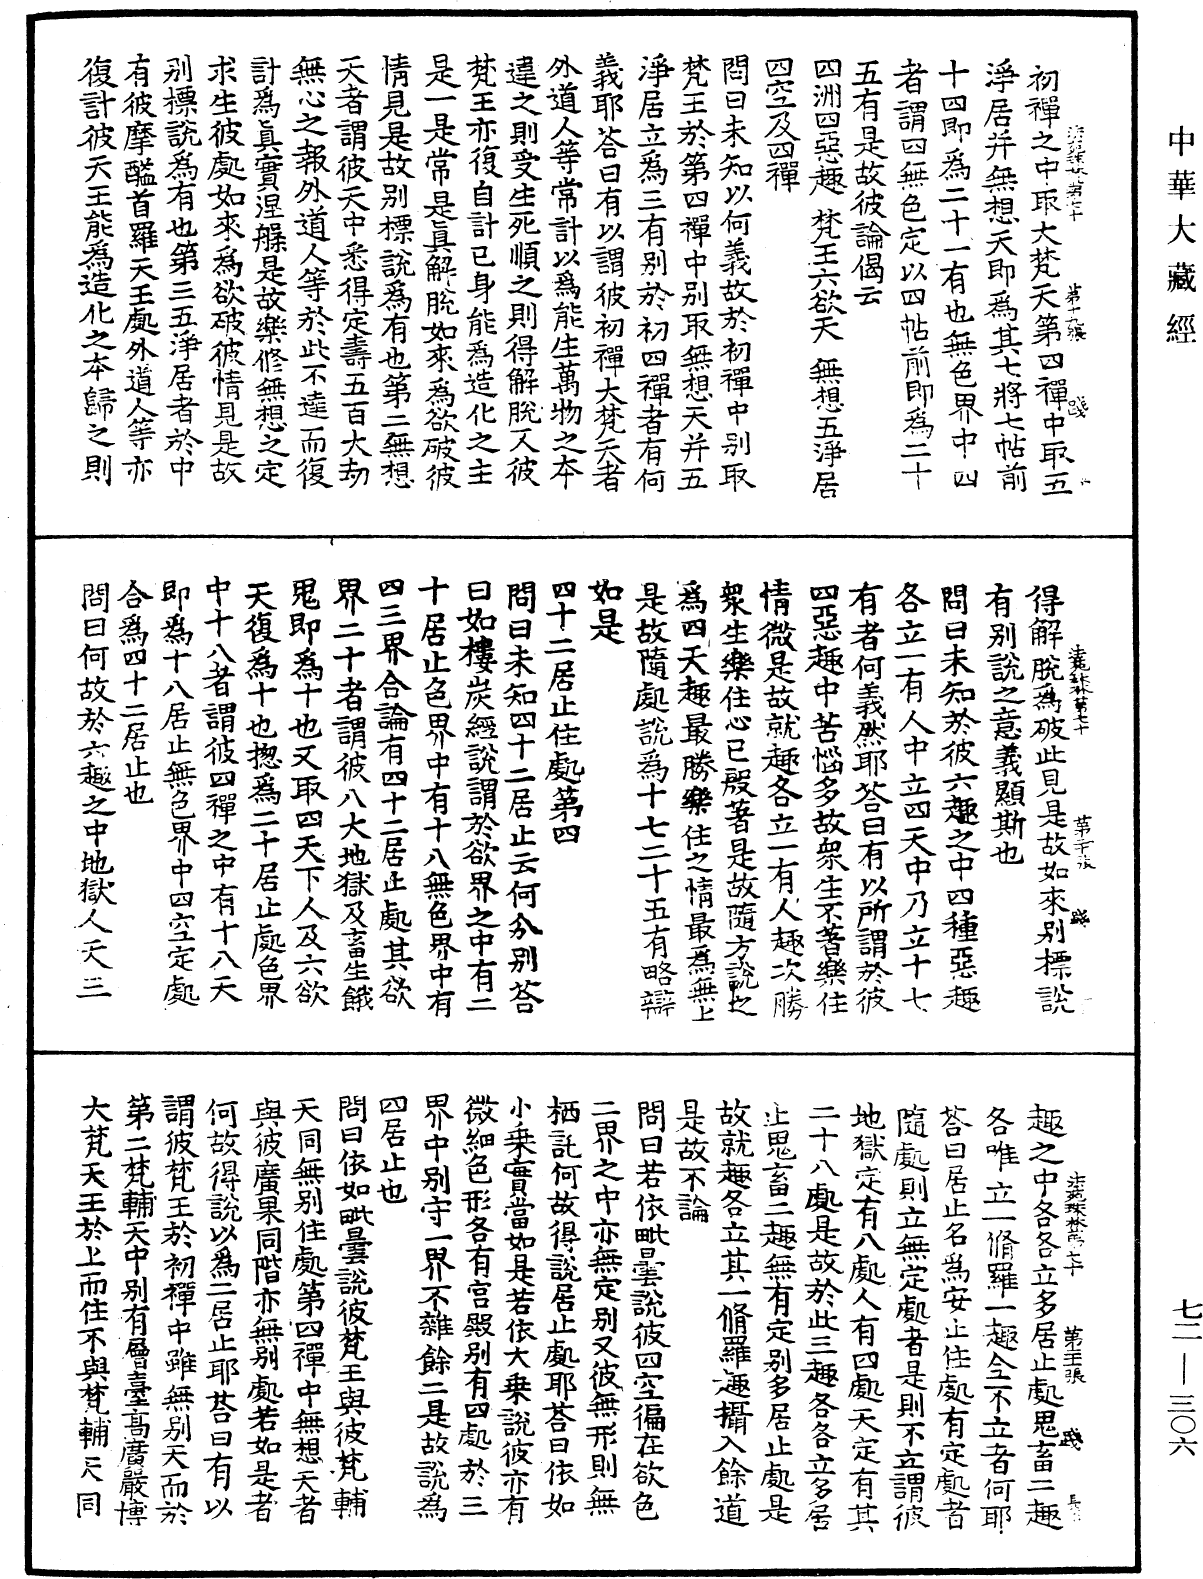 中華大藏經
初禪之中取大梵天第四禪中取五
淨居并無想天即為其七將七帖前
十四即為二十一有也無色界中四
者謂四無色定以四帖前即為二十
五有是故彼論偈云
四洲四惡趣　梵王六欲天　無想五淨居
四空及四禪
問曰未知以何義故於初禪中別取
梵王於第四禪中別取無想天并五
淨居立為三有別於初四禪者有何
義耶荅曰有以謂彼初禪大梵天者
外道人等常計以為能生萬物之本
違之則受生死順之則得解脫又彼
梵王亦復自計已身能為造化之主
是一是常是真解脫如來為欲破彼
情見是故別標說為有也第二無想
天者謂彼天中悉得定壽五百大劫
無心之報外道人等於此不達而復
計為真實涅槃是故樂修無想之定
求生彼處如來為欲破彼情見是故
別標說為有也第三五淨居者於中
有彼摩醯首羅天王處外道人等亦
復計彼天王能為造化之本歸之則
得解脫為破此見是故如來別標說
有別說之意義顯斯也
問曰未知於彼六趣之中四種惡趣
各立一有人中立四天中乃立十七
有者何義然耶荅曰有以所謂於彼
四惡趣中苦惱多故眾生不著樂住
情微是故就趣各立一有人趣次勝
眾生樂住心已殷著是故隨方說之
為四天趣最勝樂住之情最為無上
是故隨處說為十七二十五有略辯
如是
四十二居止住處第四
問曰未知四十二居止云何分別荅
曰如樓炭經說謂於欲界之中有二
十居止色界中有十八無色界中有
四三界合論有四十二居止處其欲
界二十者謂彼八大地獄及畜生餓
鬼即為十也又取四天下人及六欲
天復為十也揔為二十居止處色界
中十八者謂彼四禪之中有十八天
即為十八居止無色界中四空定處
合為四十二居止也
問曰何故於六趣之中地獄人天三
趣之中各各立多居止處鬼畜二趣
各唯立一脩羅一趣全不立者何耶
荅曰居止名為安止住處有定處者
隨處則立無定處者是則不立謂彼
地獄定有八處人有四處天定有其
二十八處是故於此三趣各各立多居
止鬼畜二趣無有定別多居止處是
故就趣各立其一脩羅趣攝入餘道
是故不論
問曰若依毗曇說彼四空徧在欲色
二界之中亦無定別又彼無形則無
栖託何故得說居止處耶荅曰依如
小乘實當如是若依大乘說彼亦有
微細色形各有宮殿別有四處於三
界中別守一界不雜餘二是故說為
四居止也
問曰依如毗曇說彼梵王與彼梵輔
天同無別住處第四禪中無想天者
與彼廣果同階亦無別處若如是者
何故得說以為二居止耶荅曰有以
謂彼梵王於初禪中雖無別天而於
第二梵輔天中別有層臺高廣嚴博
大梵天王於上而住不與梵輔天同
七二—三〇六